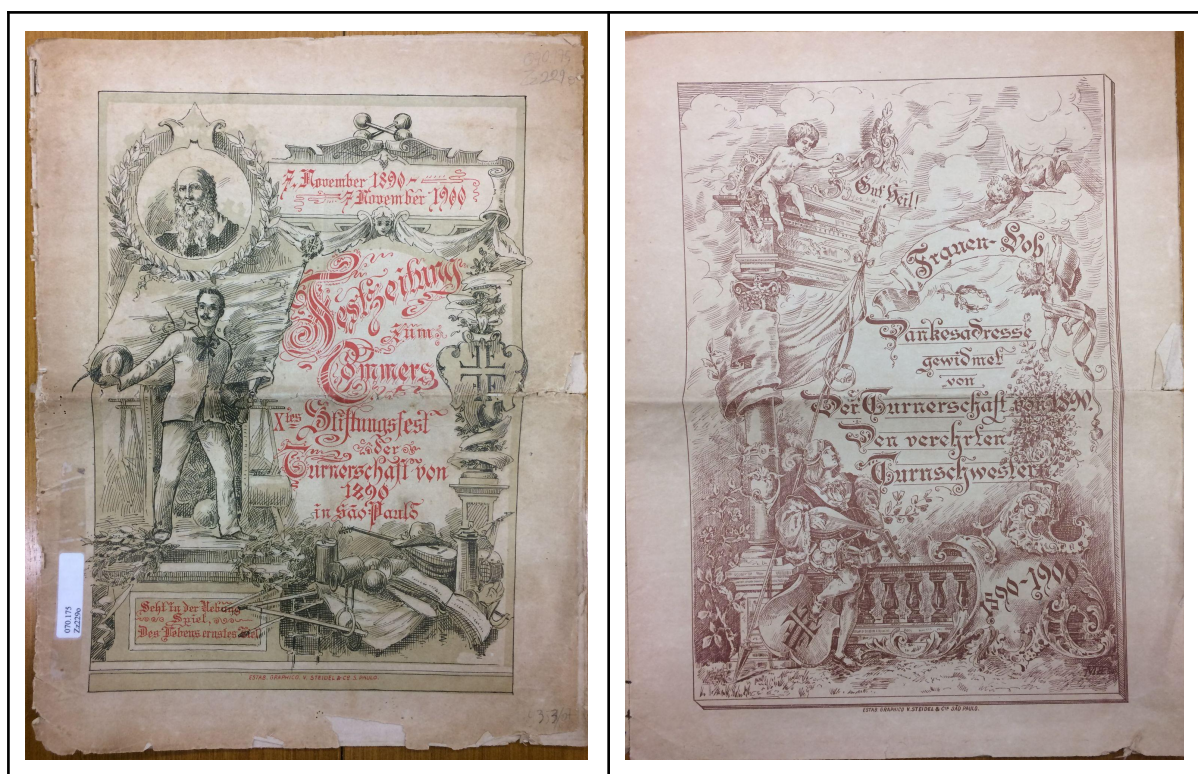 7. November 1890 –
7 November 1900
Festzeitung
zum
Commers
Xtes Stiftungsfest
der
Turnerschaft von
1890
in São Paulo
Seht in der Uebung
Spiel,
Des Lebens ernstes Ziel
ESTAB. GRAPHICO V. STEIDEL & Cª S. PAULO.
070.175
Ze229o
Gut Heil!
Frauen-Lob
Dankesadresse
gewidmet
von
Der Turnerschaft von 1890.
Den verehrten
Turnschwestern
1890-1900
ESTAB. GRAPHICO V. STEIDEL & Cª SÃO PAULO.